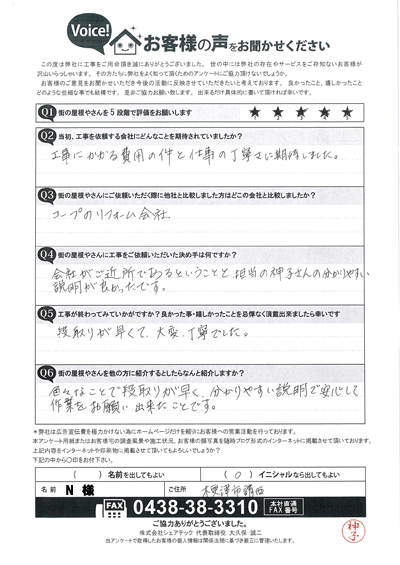 Voice!
お客様の声をお聞かせください
この度は弊社に工事をご用命頂き誠にありがとうございました。世の中には弊社の存在やサービスをご存知ないお客様が
沢山いらっしゃいます。その方たちに弊社をよく知って頂くためのアンケートにご協力頂けないでしょうか。
お客様のご意見をお聞かせいただき今後の活動に反映させていただきたいと考えております。良かったこと、嬉しかったこと
どのような些細な事でも結構です、是非ご協力お願い致します。出来るだけ具体的に書いて頂ければ幸いです。
Q1 街の屋根やさんを5段階で評価をお願いします ★ ★ ★ ★ ★
Q2 当初、工事を依頼する会社にどんなことを期待されていましたか?
工事にかかる費用の件と仕事の丁寧さに期待しました。
Q3 街の屋根やさんにご依頼いただく際に他社と比較しました方はどこの会社と比較しましたか?
コープのリフォーム会社
Q4 街の屋根やさんに工事をご依頼いただいた決め手は何ですか?
会社がご近所であるということと担当の神子さんの分かりやすい
説明が良かったです。
Q5 工事が終わってみていかがですか?良かった事・嬉しかったことを忌憚なく頂戴出来ましたら幸いです
段取りが早くて、大変、丁寧でした。
Q6 街の屋根やさんを他の方に紹介するとしたらなんと紹介しますか?
色々なことで段取りが早く、分かりやすい説明で安心して
作業をお願い出来たことです。
*弊社は広告宣伝費を極力かけない為にホームページだけを頼りにお客様への営業活動を行っております。
本アンケート用紙またはお客様宅の調査風景や施工状況、お客様の顔写真を随時ブログ形式のインターネットに掲載させて頂いております。
上記内容をインターネットや印刷物に掲載させて頂いてもよろしいでしょうか?
下記の中から〇印をお付下さい。
( )名前を出してもよい ( 〇 )イニシャルなら出してもよい
名前 N 様 ご住所 木更津市請西
FAX 0438-38-3310 本社直通 FAX番号
ご協力ありがとうございました。
株式会社シェアテック 代表取締役 大久保 誠二
当アンケートで取得したお客様の個人情報は関係法規に基づき厳正に管理いたします。
神子